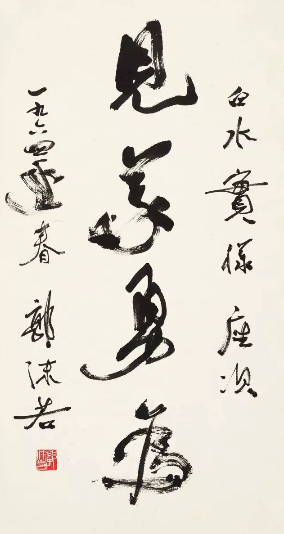 白水實樣座次
見義勇為
一九六四春
郭沫若